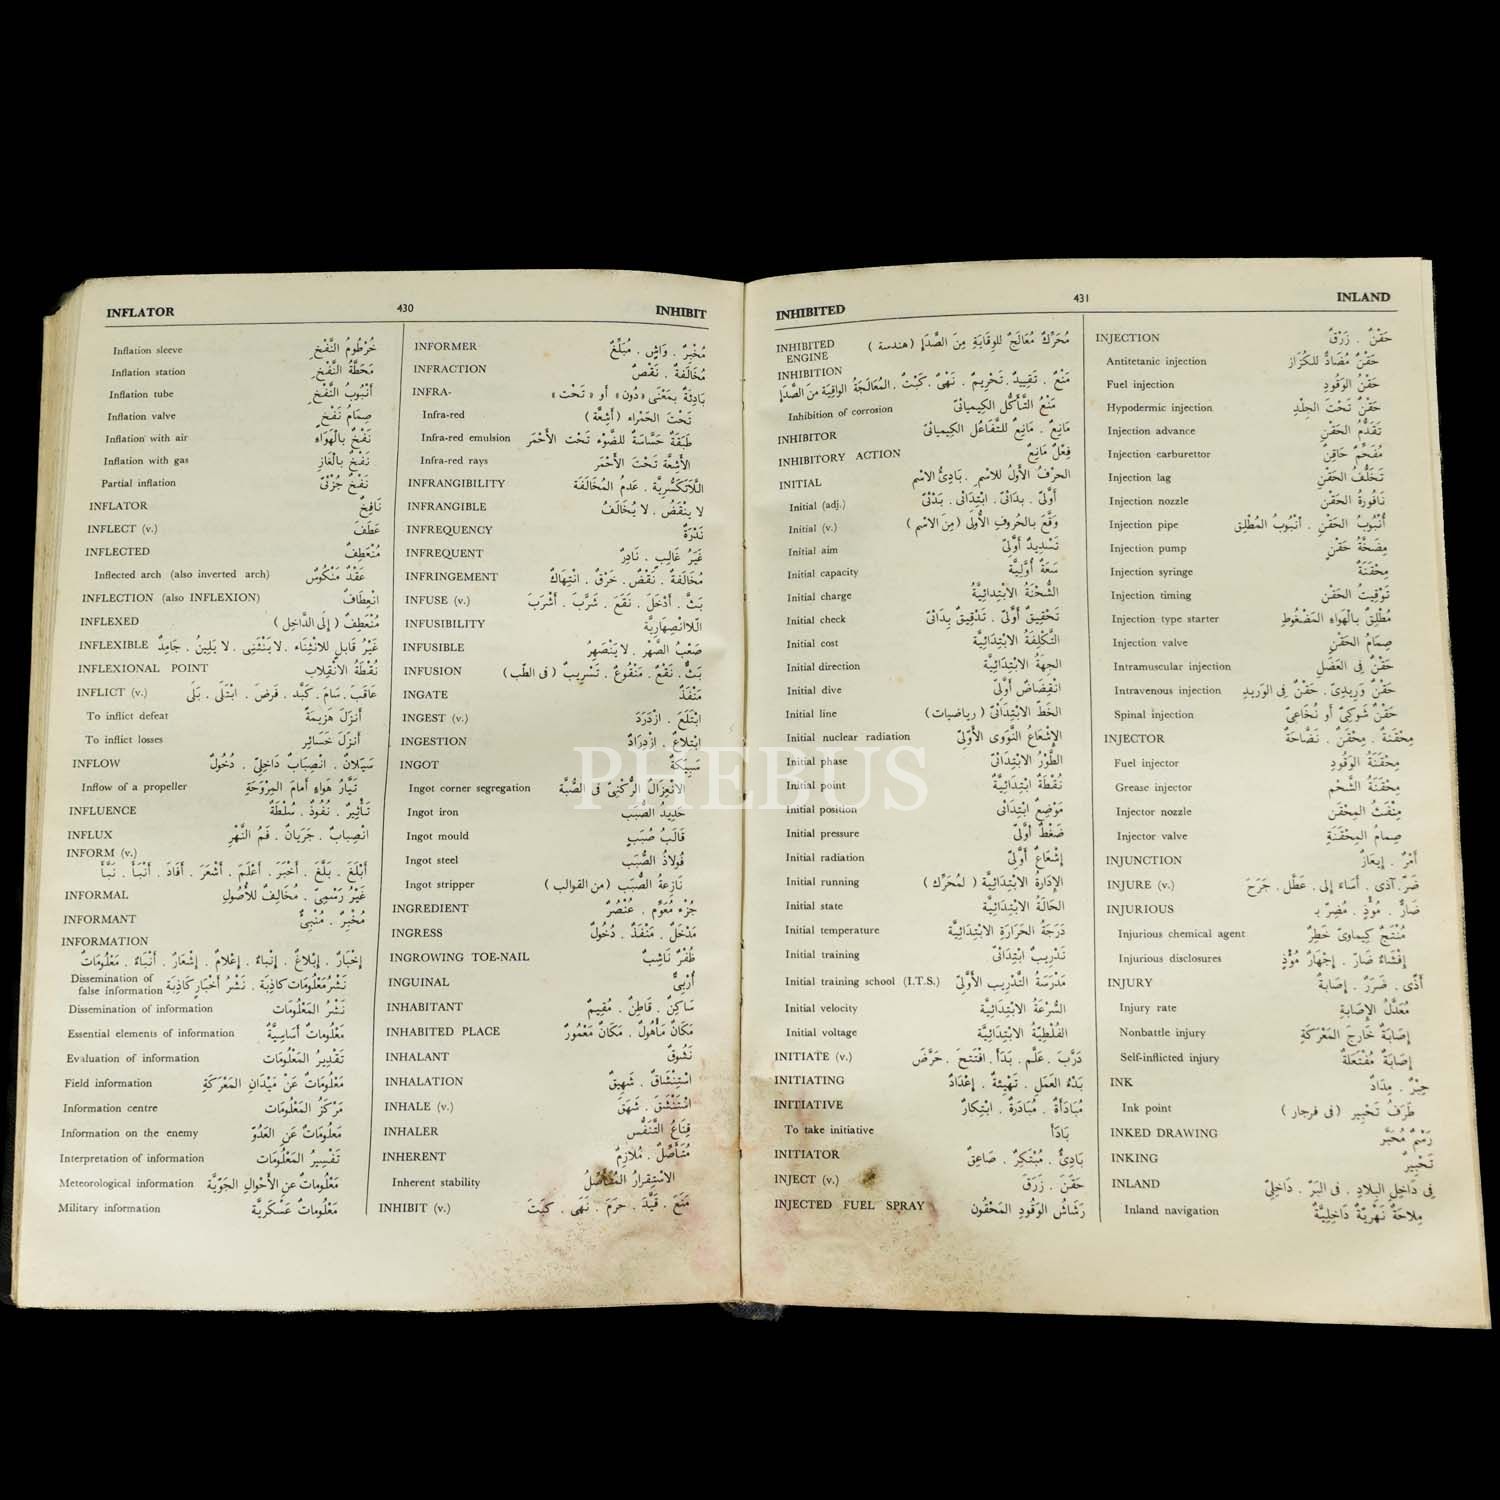 INFLATOR 430 INHIBIT
Inflation sleeve خُرْطُومُ النَّفْخِ
Inflation station مَحَطَّةُ النَّفْخِ
Inflation tube أُنْبُوبُ النَّفْخِ
Inflation valve صِمَامُ نَفْخٍ
Inflation with air نَفْخٌ بِالْهَوَاءِ
Inflation with gas نَفْخٌ بِالْغَازِ
Partial inflation نَفْخٌ جُزْئِيٌّ
INFLATOR نَافِخٌ
INFLECT (v.) عَطَفَ
INFLECTED مُنْعَطِفٌ
Inflected arch (also inverted arch) عَقْدٌ مَنْكُوسٌ
INFLECTION (also INFLEXION) انْعِطَافٌ
INFLEXED مُنْعَطِفٌ ( إِلَى الدَّاخِل )
INFLEXIBLE غَيْرُ قَابِلٍ لِلانْثِنَاء . لا يَنْثَنِى . لا يَلِينُ . جَامِدٌ
INFLEXIONAL POINT نُقْطَةُ الانْقِلاب
INFLICT (v.) عَاقَبَ . سَامَ . كَبَّدَ . فَرَضَ . ابْتَلَى . بَلَى
To inflict defeat أَنزَلَ هَزِيمَةً
To inflict losses أَنزَلَ خَسَائِر
INFLOW سَيَلانٌ . انْصِبَابٌ دَاخِلِىٌّ . دُخُولٌ
Inflow of a propeller تَيَّارُ هَوَاءٍ أَمَامَ المِرْوَحَةِ
INFLUENCE تَأْثِيرٌ . نُفُوذٌ . سُلْطَةٌ
INFLUX انْصِبابٌ . جَرَيَانٌ . فَمُ النَّهْرِ
INFORM (v.)
أَبْلَغَ . بَلَّغَ . أَخْبَرَ . أَعْلَمَ . أَشْعَرَ . أَفَادَ . أَنْبَأَ . نَبَّأَ
INFORMAL غَيْرُ رَسْمِىٍّ . مُخَالِفٌ لِلأُصُولِ
INFORMANT مُخْبِرٌ . مُنْبِىٌ
INFORMATION
إِخْبَارٌ . إِبْلاغٌ . إِنْبَاءٌ . إِعْلامٌ . إِشْعَارٌ . أَنْبَاءٌ . مَعْلُومَاتٌ
Dissemination of
false information نَشْرُ مَعْلُومَاتٍ كَاذِبَةٍ . نَشْرُ أَخْبَارٍ كَاذِبَةٍ
Dissemination of information نَشْرُ المَعْلُومَات
Essential elements of information مَعْلُومَاتٌ أَسَاسِيَّةٌ
Evaluation of information تَقْدِيرُ المَعْلُومَات
Field information مَعْلُومَاتٌ عَنْ مَيْدَانِ المَعْرَكَةِ
Information centre مَرْكَزُ المَعْلُومَات
Information on the enemy مَعلُومَاتٌ عَنِ العَدُوّ
Interpretation of information تَفْسِيرُ المَعْلُومَات
Meteorological information مَعْلُومَاتٌ عنِ الأَحْوالِ الجَوِّيَّة
Military information مَعْلُومَاتٌ عَسْكَرِيَّة
INFORMER مُخْبِرٌ . وَاشٍ . مُبَلِّغٌ
INFRACTION مُخَالَفَةٌ . نَقْضٌ
INFRA- بَادِئَةٌ بِمَعْنَى «دُون» أو «تَحْت»
Infra-red تَحْتَ الحَمْراء ( أَشِعَّة )
Infra-red emulsion طَبَقَةٌ حَسَّاسَةٌ للضَّوْء تَحْت الأَحْمَر
Infra-red rays الأَشِعَّة تَحْتَ الأَحْمَر
INFRANGIBILITY اللَّاتَكَسُّرِيَّة . عَدَمُ المُخَالَفَة
INFRANGIBLE لا يُنْقَضُ . لا يُخَالَفُ
INFREQUENCY نَدْرَةٌ
INFREQUENT غَيْرُ غَالِبٍ . نَادِرٌ
INFRINGEMENT مُخَالَفَةٌ . نَقْضٌ . خَرْقٌ . انْتِهَاكٌ
INFUSE (v.) بَثَّ . أَدْخَلَ . نَقَعَ . شَرَّبَ . أَشْرَبَ
INFUSIBILITY اللاانْصِهَارِيَّة
INFUSIBLE صَعْبُ الصَّهْر . لا يَنْصَهِرُ
INFUSION بَثٌّ . نَقْعٌ . مَنْقُوعٌ . تَسْرِيبٌ ( فى الطّب )
INGATE مَنْفَذٌ
INGEST (v.) ابْتَلَعَ . ازْدَرَدَ
INGESTION ابْتِلاعٌ . ازْدِرَادٌ
INGOT سَبِيكَةٌ
Ingot corner segregation الانْعِزَالُ الرُّكْنِىّ فى الصُّبَّة
Ingot iron حَدِيدُ الصُّبَب
Ingot mould قَالَبُ صُبَبٍ
Ingot steel فُولاذُ الصُّبَب
Ingot stripper نَازِعَةُ الصُّبَب ( من القوالب )
INGREDIENT جُزْء مُقَوِّم . عُنْصُرٌ
INGRESS مَدْخَلٌ . مَنْفَذٌ . دُخُولٌ
INGROWING TOE-NAIL ظُفْرٌ نَاشِبٌ
INGUINAL أُرْبِىٌّ
INHABITANT سَاكِنٌ . قَاطِنٌ . مُقِيمٌ
INHABITED PLACE مَكَانٌ مَأْهُولٌ . مَكَانٌ مَعْمُورٌ
INHALANT نَشُوقٌ
INHALATION اسْتِنْشَاقٌ . شَهِيقٌ
INHALE (v.) اسْتَنْشَقَ . شَهَقَ
INHALER قِنَاعُ التَّنَفُّس
INHERENT مُتَأَصِّلٌ . مُلازِمٌ
Inherent stability الاسْتِقْرَارُ المُتَأَصِّلُ
INHIBIT (v.) مَنَعَ . قَيَّدَ . حَرَمَ . نَهَى . كَبَتَ
INHIBITED 431 INLAND
INHIBITED
ENGINE مُحَرِّكٌ مُعَالَجٌ لِلوِقَايَةِ مِنَ الصَّدَإِ ( هندسة )
INHIBITION
مَنْعٌ . تَقْيِيدٌ . تَحْرِيمٌ . نَهْىٌ . كَبْتٌ . المُعَالَجَةُ الوَاقِيَة مِنَ الصَّدَإِ
Inhibition of corrosion مَنْعُ التَّآكُلِ الكِيمِيائىّ
INHIBITOR مَانِعٌ . مَانِعٌ لِلتَّفَاعُلِ الكِيمِيائىّ
INHIBITORY ACTION فِعْلٌ مَانِعٌ
INITIAL الحرْفُ الأوّلُ للاسْمِ . بَادِئُ الاسْم
Initial (adj.) أَوَّلىّ . بدَائىّ . ابْتِدَائى . بَدْئىّ
Initial (v.) وَقَّعَ بِالحُروفِ الأُولَى ( مِنَ الاسْم )
Initial aim تَسْدِيدٌ أَوَّلىّ
Initial capacity سَعَةٌ أَوَّلِيَّة
Initial charge الشُّحْنَةُ الابْتِدَائِيَّةُ
Initial check تَحْقِيقٌ أَوَّلىّ . تَدْقِيقٌ بِدَائىّ
Initial cost التَّكْلِفَةُ الابْتِدَائِيَّة
Initial direction الجِهَةُ الابْتِدَائِيَّة
Initial dive انْقِضَاضٌ أَوَّلىّ
Initial line الخَطّ الابْتِدَائىّ ( رياضيات )
Initial nuclear radiation الإِشْعَاعُ النَّوَوِى الأَوَّلىّ
Initial phase الطَّوْرُ الابْتِدَائىّ
Initial point نُقْطَةٌ ابْتِدَائِيَّةٌ
Initial position مَوْضِعٌ ابْتِدَائى
Initial pressure ضَغْطٌ أَوَّلىّ
Initial radiation إِشْعَاعٌ أَوَّلىّ
Initial running الإِدَارَةُ الابْتِدَائِيَّة ( لمُحَرِّك )
Initial state الحَالَةُ الابْتِدَائِيَّة
Initial temperature دَرَجَةُ الحَرَارَةِ الابْتِدَائِيَّة
Initial training تَدْرِيبٌ ابْتِدَائىّ
Initial training school (I.T.S.) مَدْرَسَةُ التَّدْرِيب الأَوَّلىّ
Initial velocity السُّرْعَةُ الابْتِدَائِيَّة
Initial voltage الفُلْطِيَّةُ الابْتِدَائِيَّة
INITIATE (v.) دَرَّبَ . عَلَّم . بَدَأَ . افْتَتَحَ . حَرَّضَ
INITIATING بَدْءُ العَمَلِ . تَهْيِئَةٌ . إِعْدَادٌ
INITIATIVE مُبَادَأَةٌ . مُبَادَرَةٌ . ابْتِكَارٌ
To take initiative بَادَأَ
INITIATOR بَادِئٌ . مُبْتَكِرٌ . صَاعِقٌ
INJECT (v.) حَقَنَ . زَرَقَ
INJECTED FUEL SPRAY رَشَاشُ الوَقُودِ المَحْقُون
INJECTION حَقْنٌ . زَرْقٌ
Antitetanic injection حَقْنٌ مُضَادٌّ للكُزَاز
Fuel injection حَقْنُ الوَقُودِ
Hypodermic injection حَقْنٌ تَحْتَ الجِلْدِ
Injection advance تَقَدُّمُ الحَقْنِ
Injection carburettor مُفَحِّمٌ حَاقِنٌ
Injection lag تَخَلُّفُ الحَقْنِ
Injection nozzle نَافُورَةُ الحَقْنِ
Injection pipe أُنْبُوبُ الحَقْنِ . أنْبُوبُ المُطْلِقِ
Injection pump مِضَخَّةُ حَقْنٍ
Injection syringe مِحْقَنَةٌ
Injection timing تَوْقِيتُ الحَقْنِ
Injection type starter مُطْلِقٌ بالهَوَاءِ المَضْغُوطِ
Injection valve صِمَامُ الحَقْنِ
Intramuscular injection حَقْنٌ فِى العَضَلِ
Intravenous injection حَقْنٌ وَرِيدِىّ . حَقْنٌ فِى الوَرِيدِ
Spinal injection حَقْنٌ شَوكِىّ أو نُخَاعِىّ
INJECTOR مِحْقَنَةٌ . مِحْقَنٌ . نَضَّاحَةٌ
Fuel injector مِحْقَنَةُ الوَقُودِ
Grease injector مِحْقَنَةُ الشَّحْمِ
Injector nozzle مِنْفَثُ المِحْقَنِ
Injector valve صِمامُ المِحْقَنَةِ
INJUNCTION أَمْرٌ . إِيعَازٌ
INJURE (v.) ضَرَّ . آذى . أَسَاءَ إِلى . عَطَّلَ . جَرَحَ
INJURIOUS ضَارٌّ . مُؤْذٍ . مُضِرٌّ بـ
Injurious chemical agent مُنْتَجٌ كِيماوىّ خَطِرٌ
Injurious disclosures إِفْشَاءٌ ضَارّ . إِجْهَارٌ مُؤْذٍ
INJURY أَذًى . ضَرَرٌ . إِصَابةٌ
Injury rate مُعَدَّلُ الإِصَابَةِ
Nonbattle injury إِصَابَةٌ خَارِجَ المَعْرَكَةِ
Self-inflicted injury إِصَابَةٌ مُفْتَعَلَةٌ
INK حِبْرٌ . مِدَادٌ
Ink point طَرَفُ تَحْبِيرٍ ( فى فرجار )
INKED DRAWING رَسْمٌ مُحَبَّر
INKING تَحْبِيرٌ
INLAND فِى دَاخِلِ البِلادِ . فى البَرّ . دَاخِلِىّ
Inland navigation مِلاحَةٌ نَهْرِيَّةٌ دَاخِلِيَّةٌ
PHEBUS